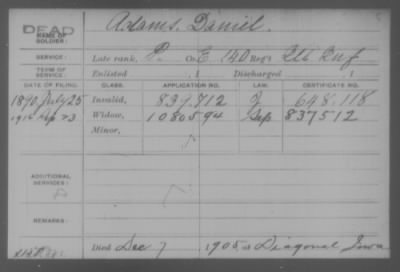 DEAD
Adams, Daniel.
NAME OF SOLDIER:
SERVICE: Late rank, P. Co. E, 140 Reg't Ill Inf
TERM OF SERVICE: Enlisted , 1 Discharged , 1
DATE OF FILING. CLASS. APPLICATION NO. LAW. CERTIFICATE NO.
1890 July 25 Invalid, 837.712 J 648.118
23 Widow, 1080594 837512
Minor,
ADDITIONAL SERVICES:
REMARKS:
Died Dec 7, 1905 at Diagonal Iowa